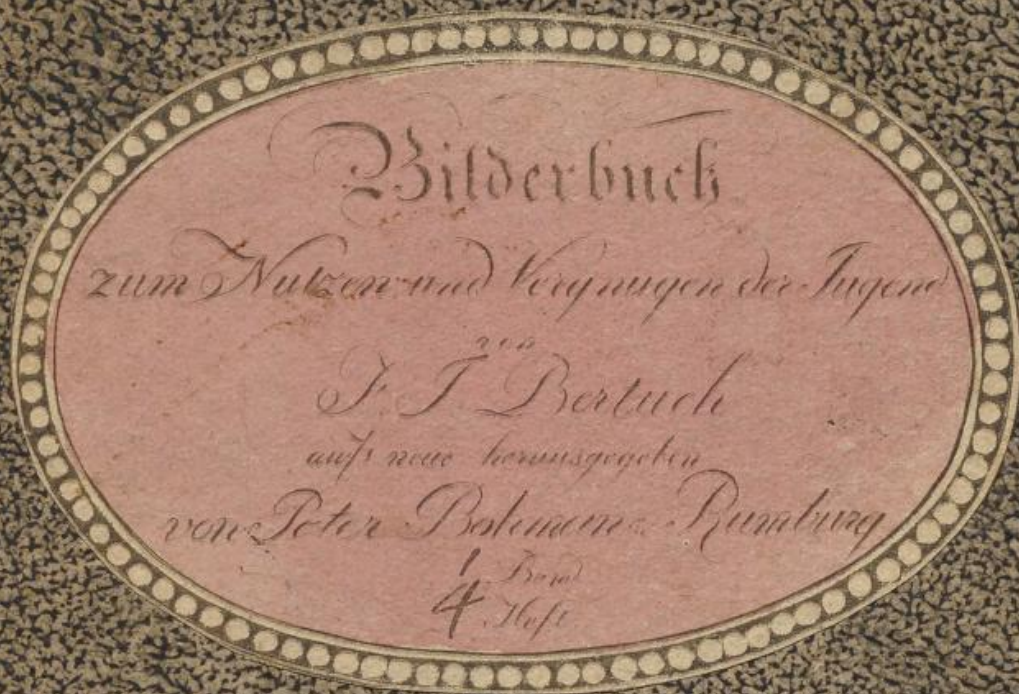 Bilderbuch
zum Nutzen und Vergnugen der Jugend
von
F. J. Bertuch
aufs neue herausgegeben
von Peter Bohmann Rumburg
1 Band
4 Heft